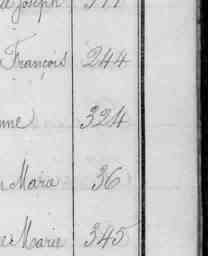 Joseph
François 244
nne 324
Marie 36
e Marie 345